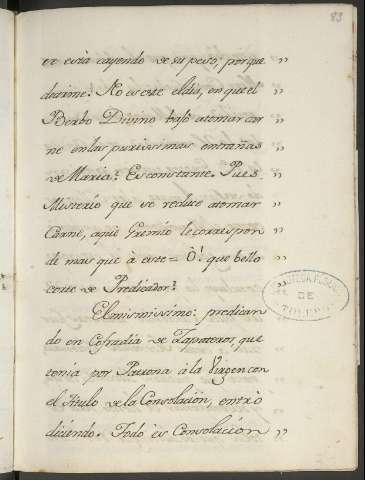 83
se està cayendo de su peso, porque "
decirme: No es este el dia, en que el "
Berbo Divino bajò a tomar car "
ne en las purissimas entrañas "
de Maria? Es constante. Pues "
Misterio que se reduce a tomar "
Carne, aquè Gremio le correspon "
de mas que à este = Ò! que bello "
corte de Predicador? "
El mismissimo: predican "
do en Cofradia de Zapateros, que "
tenia por Patrona à la Virgen con "
el titulo de la Consolaciòn, entrò "
diciendo. Todo ès Consolaciòn "
DE